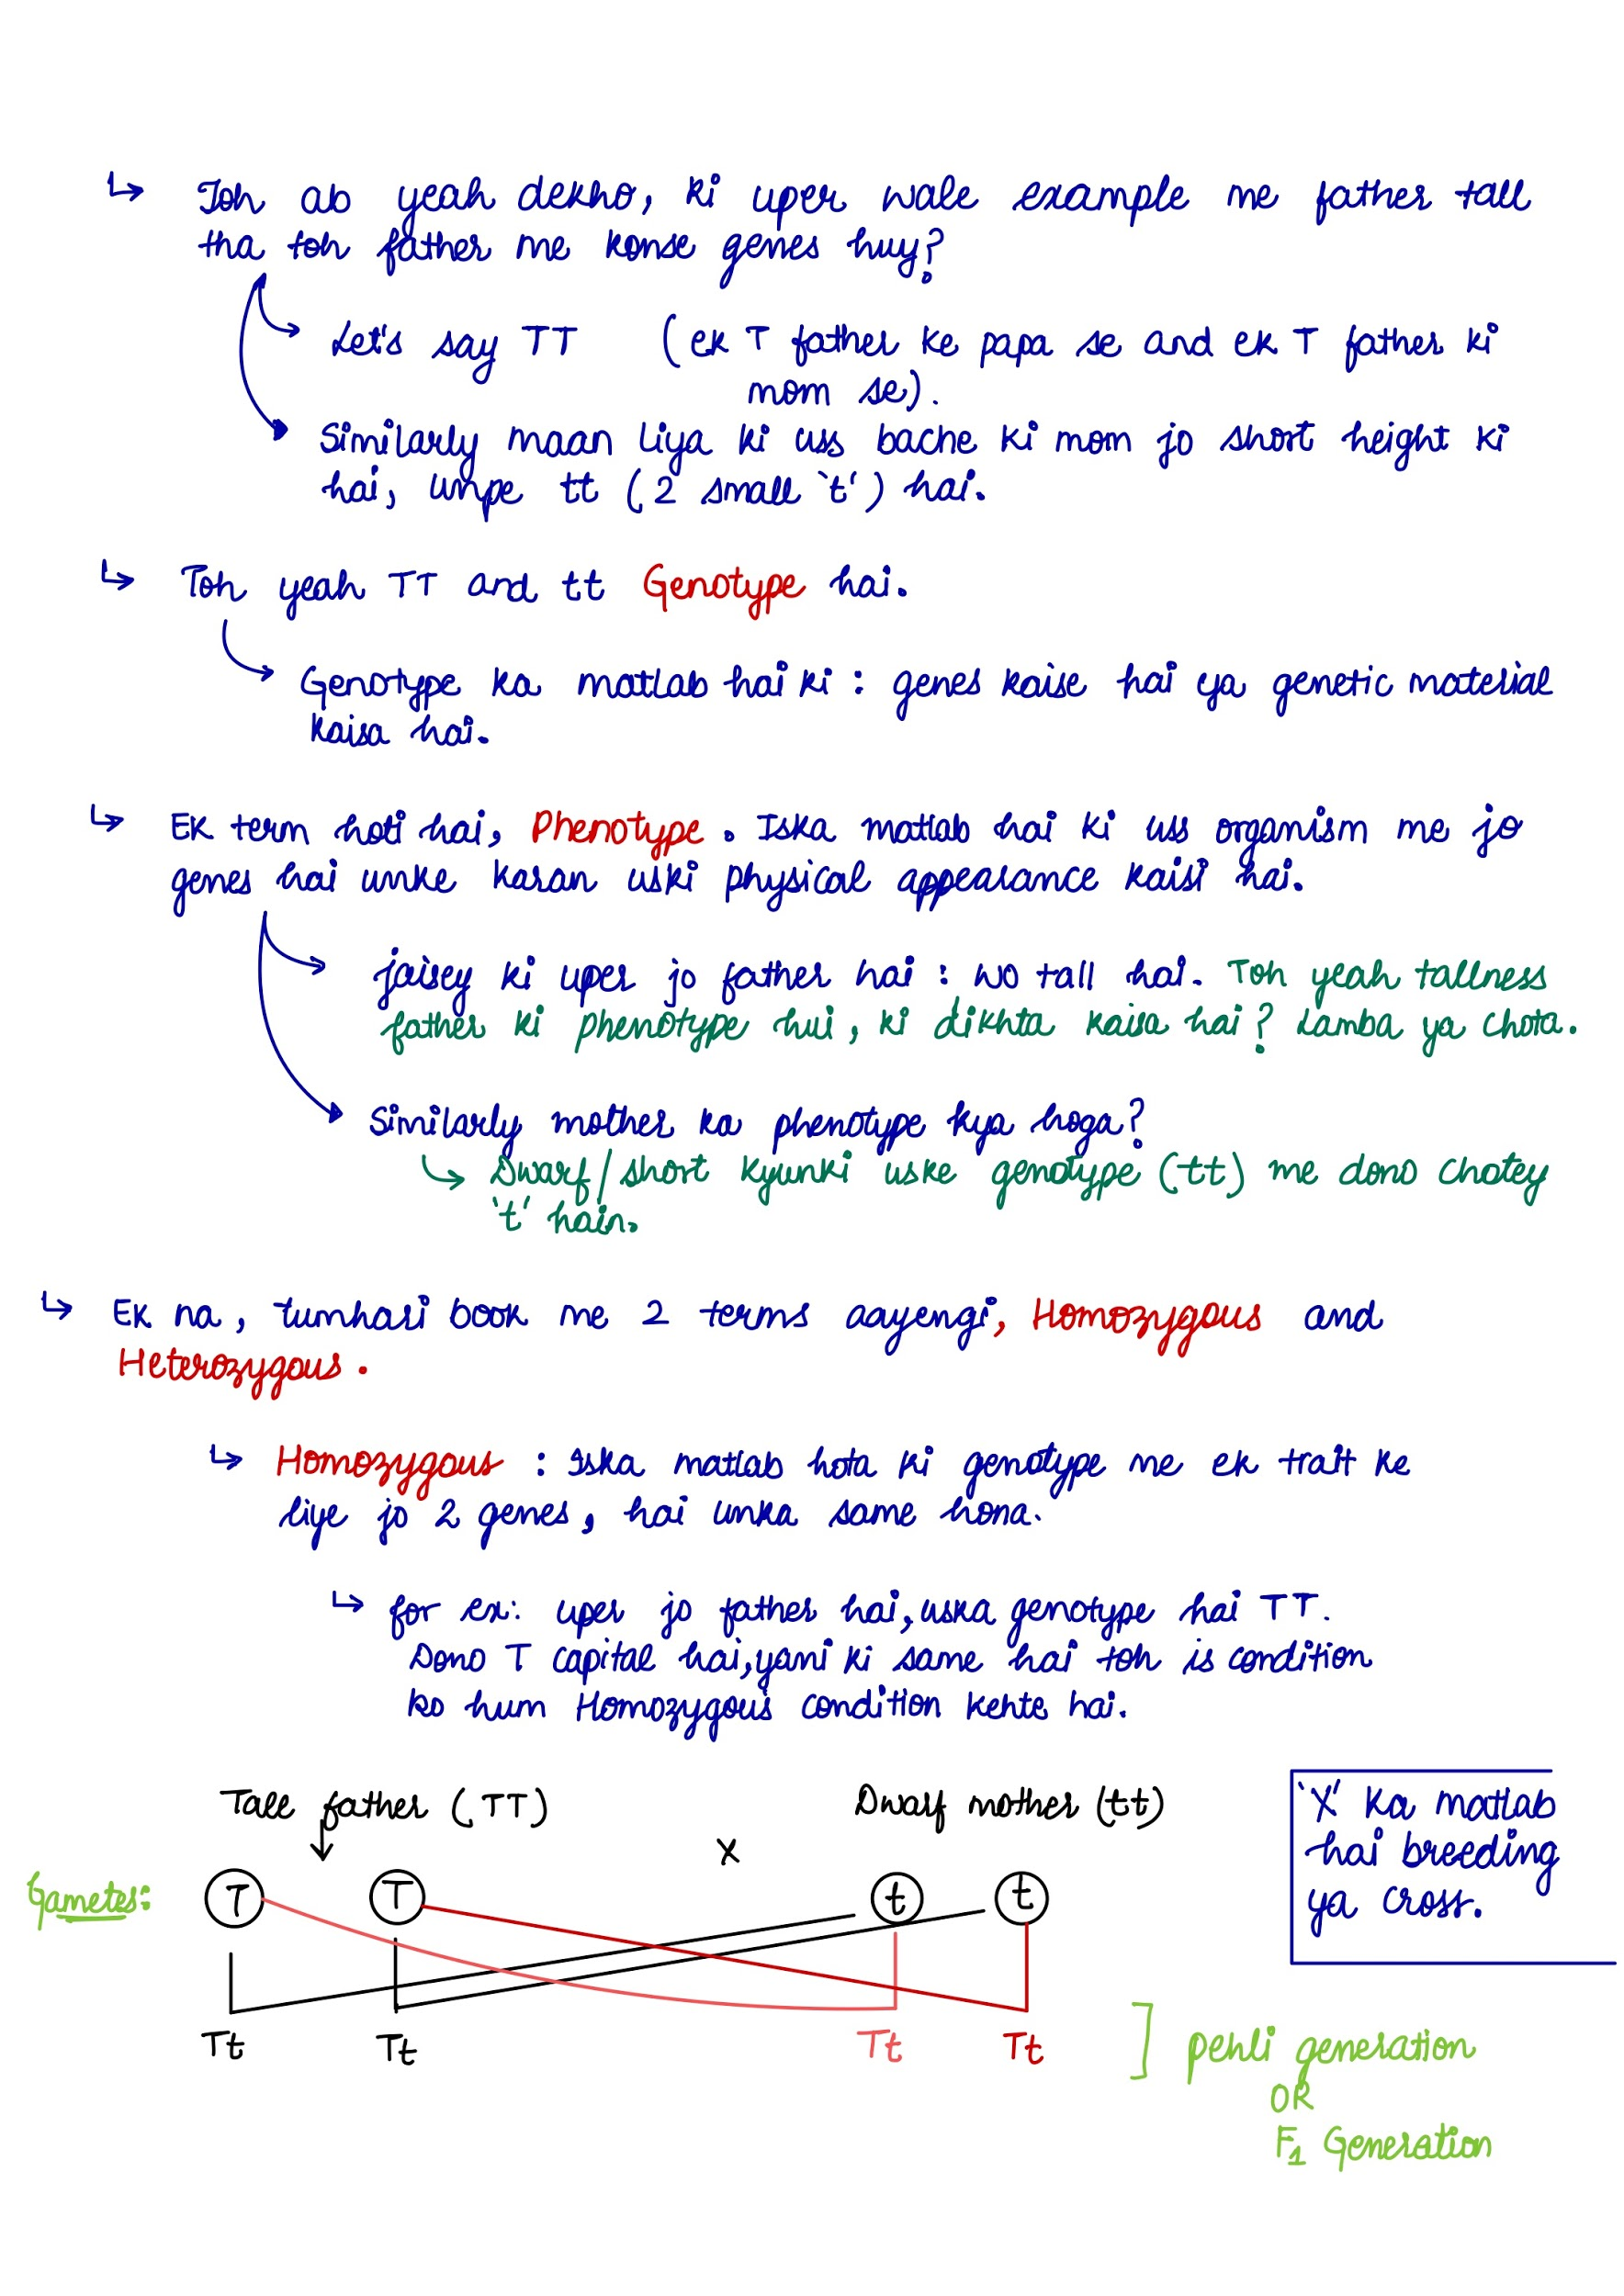 ↳ Toh ab yeah dekho, ki uper wale example me father tall
tha toh father me konse genes huy?
Let's say TT (ek T father ke papa se and ek T father ki
mom se).
Similarly maan liya ki uss bache ki mom jo short height ki
hai, unpe tt (2 small 't') hai.
↳ Toh yeah TT and tt Genotype hai.
Genotype ka matlab hai ki : genes kaise hai ya genetic material
kaisa hai.
↳ Ek term hoti hai, Phenotype. Iska matlab hai ki uss organism me jo
genes hai unke karan uski physical appearance kaisi hai.
jaisey ki uper jo father hai : wo tall hai. Toh yeah tallness
father ki phenotype hui, ki dikhta kaisa hai? Lamba ya chota.
Similarly mother ka phenotype kya hoga?
↳ Dwarf/short kyunki uske genotype (tt) me dono chotey
't' hain.
↳ Ek na, tumhari book me 2 terms aayengi, Homozygous and
Heterozygous.
↳ Homozygous : Iska matlab hota ki genotype me ek trait ke
liye jo 2 genes, hai unka same hona.
↳ for ex: uper jo father hai, uska genotype hai TT.
Dono T capital hai, yani ki same hai toh is condition
ko hum Homozygous condition kehte hai.
Tall father (TT) X Dwarf mother (tt)
'X' ka matlab
hai breeding
ya cross.
Gametes: T T t t
Tt Tt Tt Tt
] pehli generation
OR
F1 Generation